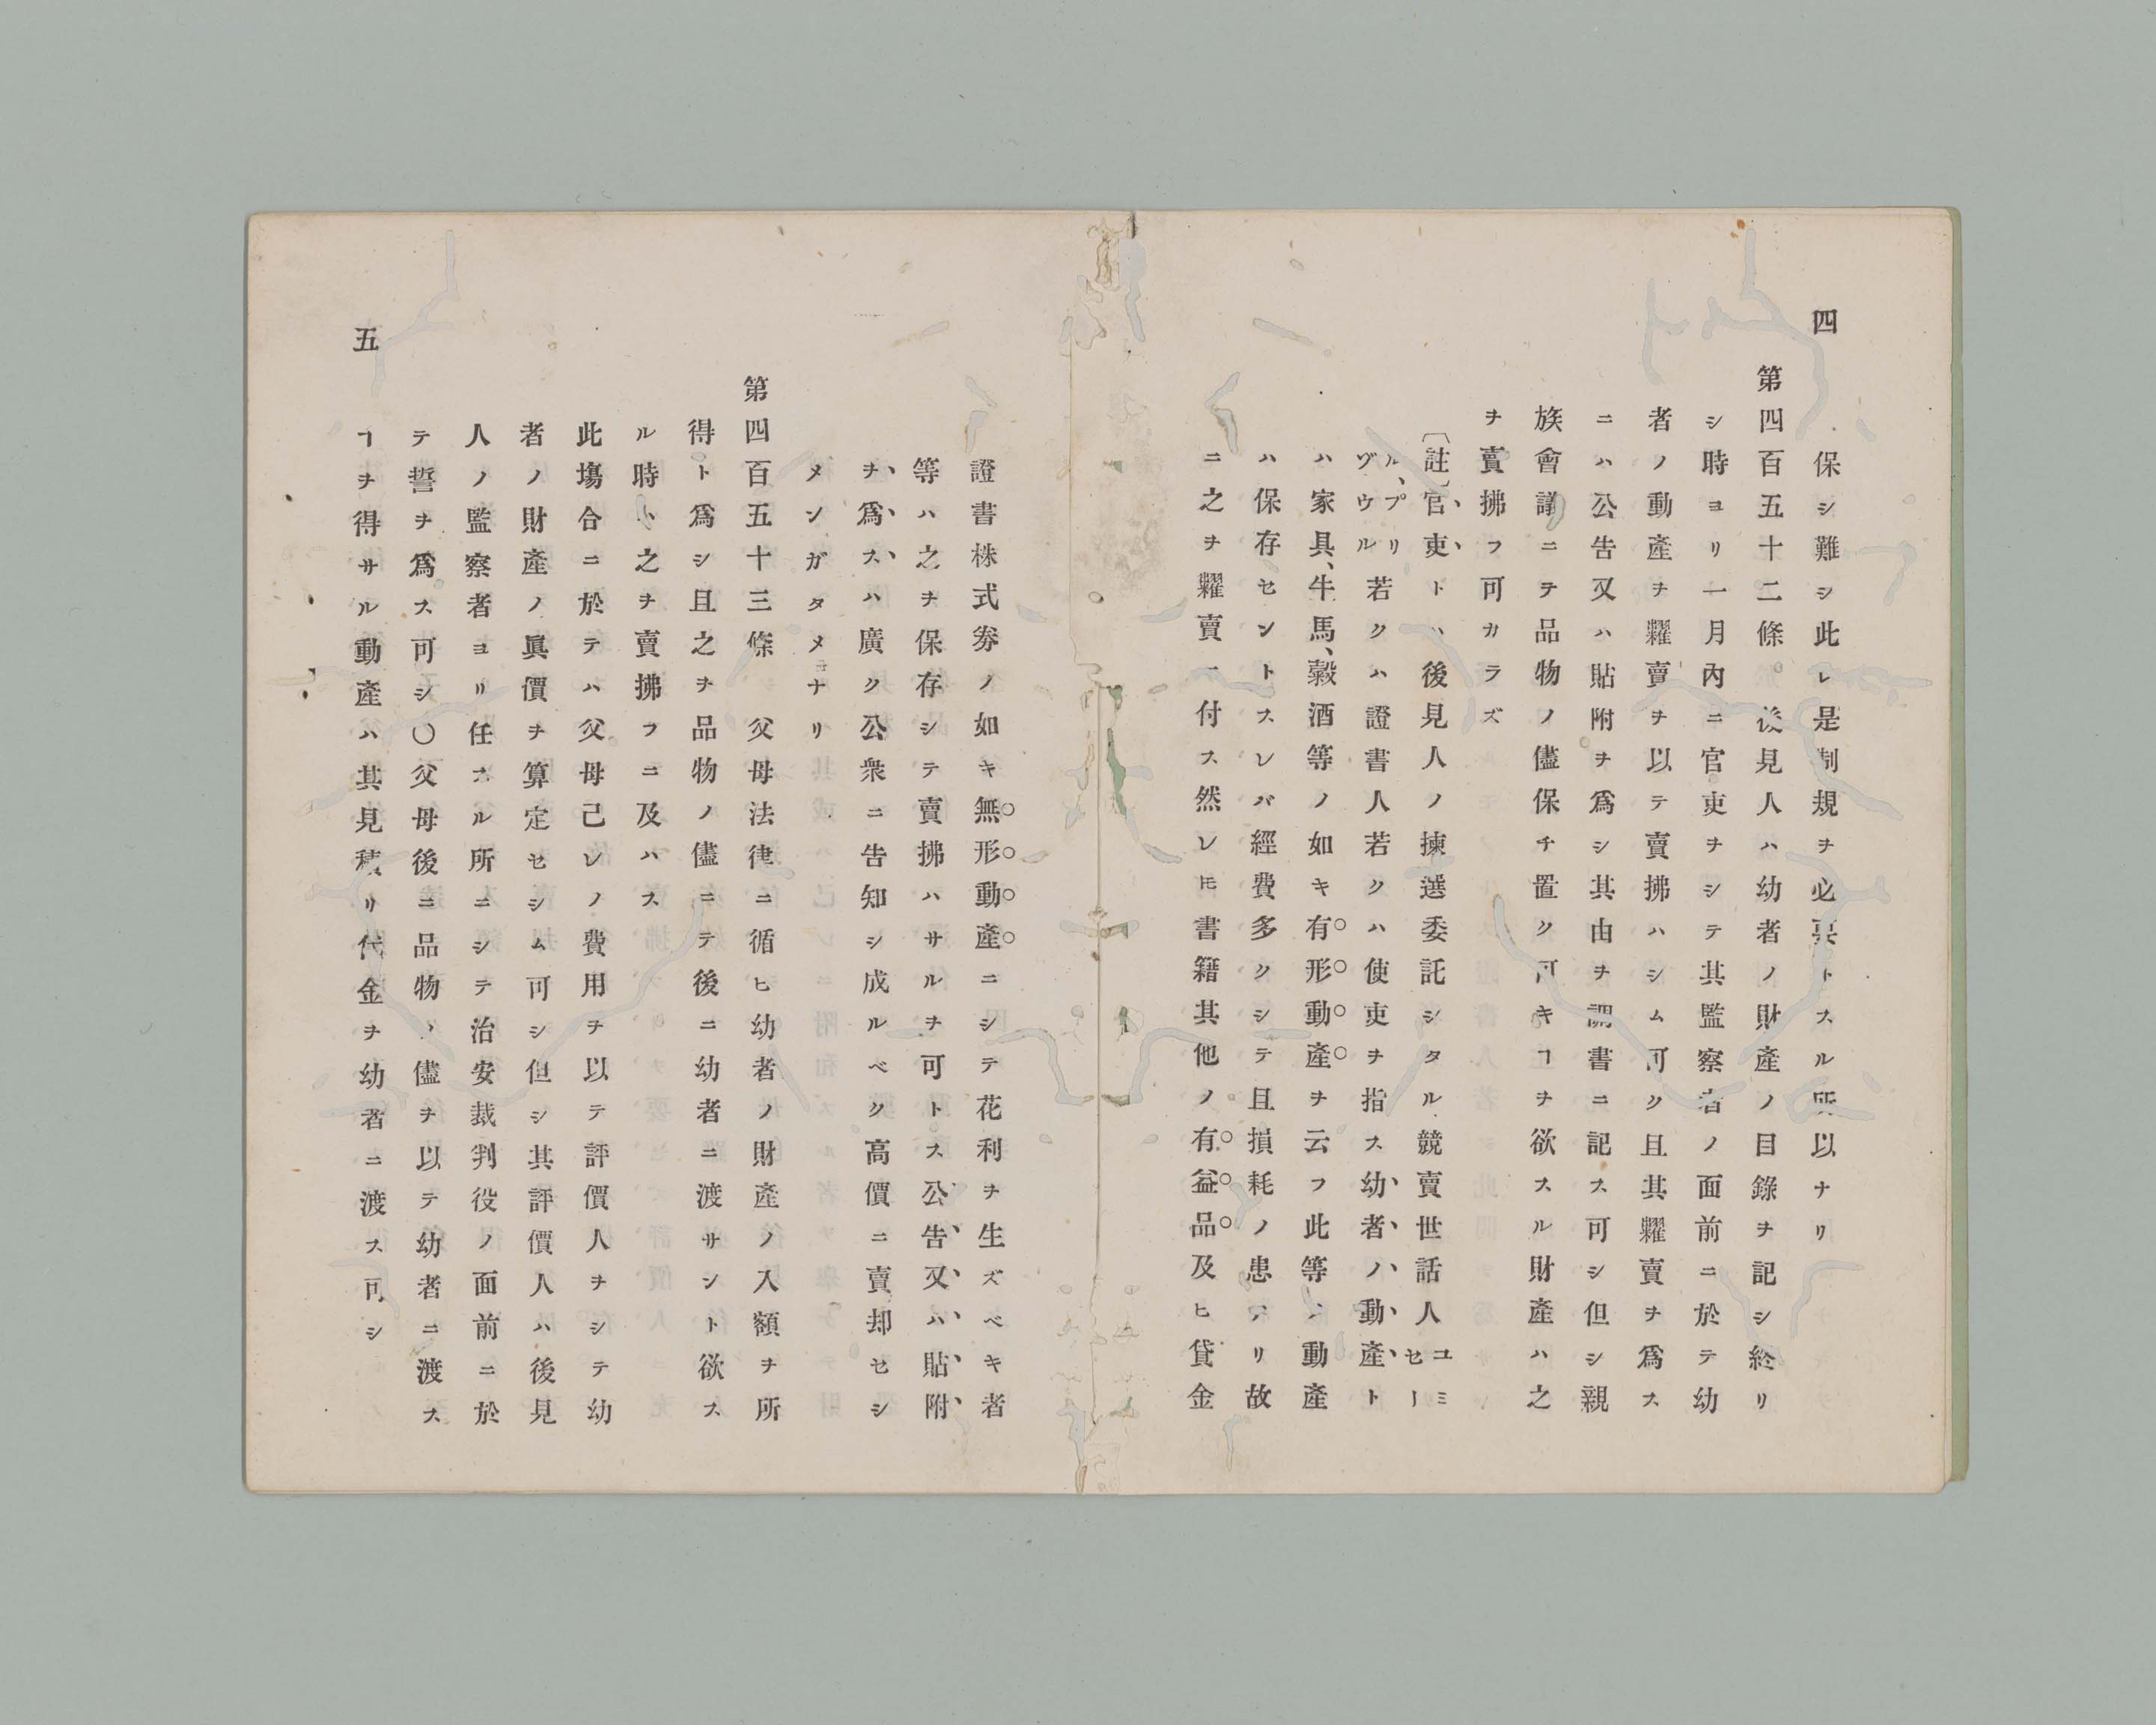 四
保シ難シ此レ是制規ヲ必要トスル所以ナリ
第四百五十二條。後見人ハ幼者ノ財產ノ目錄ヲ記シ終リ
シ時ヨリ一月內ニ官吏ヲシテ其監察者ノ面前ニ於テ幼
者ノ動產ヲ糶賣ヲ以テ賣拂ハシム可ク且其糶賣ヲ爲ス
ニハ公告又ハ貼附ヲ爲シ其由ヲ調書ニ記ス可シ但シ親
族會議ニテ品物ノ儘保チ置ク可キヿヲ欲スル財產ハ之
ヲ賣拂フ可カラズ
〔註〕官吏トハ後見人ノ揀選委託シタル競賣世話人ユミセー
ル、プリヅウル若クハ證書人若クハ使吏ヲ指ス幼者ノ動產ト
ハ家具、牛馬、穀酒等ノ如キ有形動產ヲ云フ此等ハ動產
ハ保存セントスレバ經費多クシテ且損耗ノ患アリ故
ニ之ヲ糶賣ニ付ス然レ𪜈書籍其他ノ有益品及ヒ貸金
證書株式劵ノ如キ無形動產ニシテ花利ヲ生ズベキ者
等ハ之ヲ保存シテ賣拂ハサルヲ可トス公告又ハ貼附
ヲ爲スハ廣ク公衆ニ吿知シ成ルベク高價ニ賣却セシ
メンガタメナリ
第四百五十三條 父母法律ニ循ヒ幼者ノ財產ノ入額ヲ所
得ト爲シ且之ヲ品物ノ儘ニテ後ニ幼者ニ渡サント欲ス
ル時ハ之ヲ賣拂フニ及ハス
此塲合ニ於テハ父母己レノ費用ヲ以テ評價人ヲシテ幼
者ノ財產ノ眞價ヲ算定セシム可シ但シ其評價人ハ後見
人ノ監察者ヨリ任スル所ニシテ治安裁判役ノ面前ニ於
テ誓ヲ爲ス可シ〇父母後ニ品物ノ儘ヲ以テ幼者ニ渡ス
ヿヲ得サル動產ハ其見積リ代金ヲ幼者ニ渡ス可シ
五